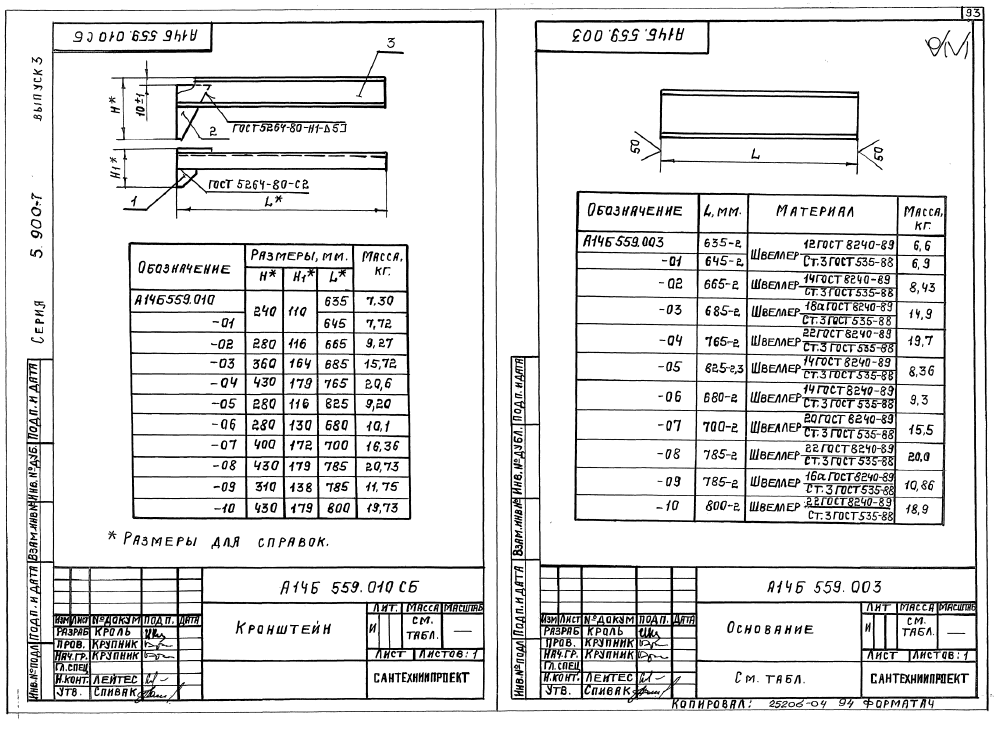 93
А14Б 559.010 СБ
3
H*
10±1
2
ГОСТ 5264-80-Н1-Δ5
H1*
ГОСТ 5264-80-С2
1
L*
ОБОЗНАЧЕНИЕ РАЗМЕРЫ, ММ. МАССА, КГ.
H* H1* L*
А14Б559.010 240 110 635 7,30
-01 645 7,72
-02 280 116 665 9,27
-03 360 164 685 15,72
-04 430 179 765 20,6
-05 280 116 825 9,20
-06 280 130 680 10,1
-07 400 172 700 16,36
-08 430 179 785 20,73
-09 310 138 785 11,75
-10 430 179 800 19,73
* РАЗМЕРЫ ДЛЯ СПРАВОК.
СЕРИЯ 5.900-7 ВЫПУСК 3
ИНВ.№ПОДЛ ПОДП. И ДАТА ВЗАМ.ИНВ№ ИНВ.№ДУБ. ПОДП. И ДАТА
А14Б 559.010 СБ
ИЗМ ЛИСТ №ДОКУМ ПОДП. ДАТА
РАЗРАБ КРОЛЬ
ПРОВ. КРУПНИК
НАЧ.ГР. КРУПНИК
ГЛ.СПЕЦ
Н.КОНТ. ЛЕЙТЕС
УТВ. СПИВАК
КРОНШТЕЙН
ЛИТ. МАССА МАСШТАБ
И СМ. ТАБЛ. —
ЛИСТ ЛИСТОВ: 1
САНТЕХНИИПРОЕКТ
А14Б 559.003
√(√)
50
L
50
ОБОЗНАЧЕНИЕ L, ММ. МАТЕРИАЛ МАССА, КГ.
А14Б559.003 635-2 ШВЕЛЛЕР 12ГОСТ 8240-89 6,6
-01 645-2 СТ.3 ГОСТ 535-88 6,9
-02 665-2 ШВЕЛЛЕР 14ГОСТ 8240-89 СТ.3 ГОСТ 535-88 8,43
-03 685-2 ШВЕЛЛЕР 18а ГОСТ 8240-89 СТ.3 ГОСТ 535-88 14,9
-04 765-2 ШВЕЛЛЕР 22ГОСТ 8240-89 СТ.3 ГОСТ 535-88 19,7
-05 825-2,3 ШВЕЛЛЕР 14ГОСТ 8240-89 СТ.3 ГОСТ 535-88 8,36
-06 680-2 ШВЕЛЛЕР 14ГОСТ 8240-89 СТ.3 ГОСТ 535-88 9,3
-07 700-2 ШВЕЛЛЕР 20ГОСТ 8240-89 СТ.3 ГОСТ 535-88 15,5
-08 785-2 ШВЕЛЛЕР 22ГОСТ 8240-89 СТ.3 ГОСТ 535-88 20,0
-09 785-2 ШВЕЛЛЕР 16а ГОСТ 8240-89 СТ.3 ГОСТ 535-88 10,86
-10 800-2 ШВЕЛЛЕР 22ГОСТ 8240-89 СТ.3 ГОСТ 535-88 18,9
ИНВ.№ПОДЛ ПОДП. И ДАТА ВЗАМ.ИНВ№ ИНВ.№ДУБЛ. ПОДП. И ДАТА
А14Б 559.003
ИЗМ ЛИСТ №ДОКУМ ПОДП. ДАТА
РАЗРАБ КРОЛЬ
ПРОВ. КРУПНИК
НАЧ.ГР. КРУПНИК
ГЛ.СПЕЦ
Н.КОНТ. ЛЕЙТЕС
УТВ. СПИВАК
ОСНОВАНИЕ
СМ. ТАБЛ.
ЛИТ МАССА МАСШТАБ
И СМ. ТАБЛ. —
ЛИСТ ЛИСТОВ: 1
САНТЕХНИИПРОЕКТ
КОПИРОВАЛ: 25206-04 94 ФОРМАТ А4